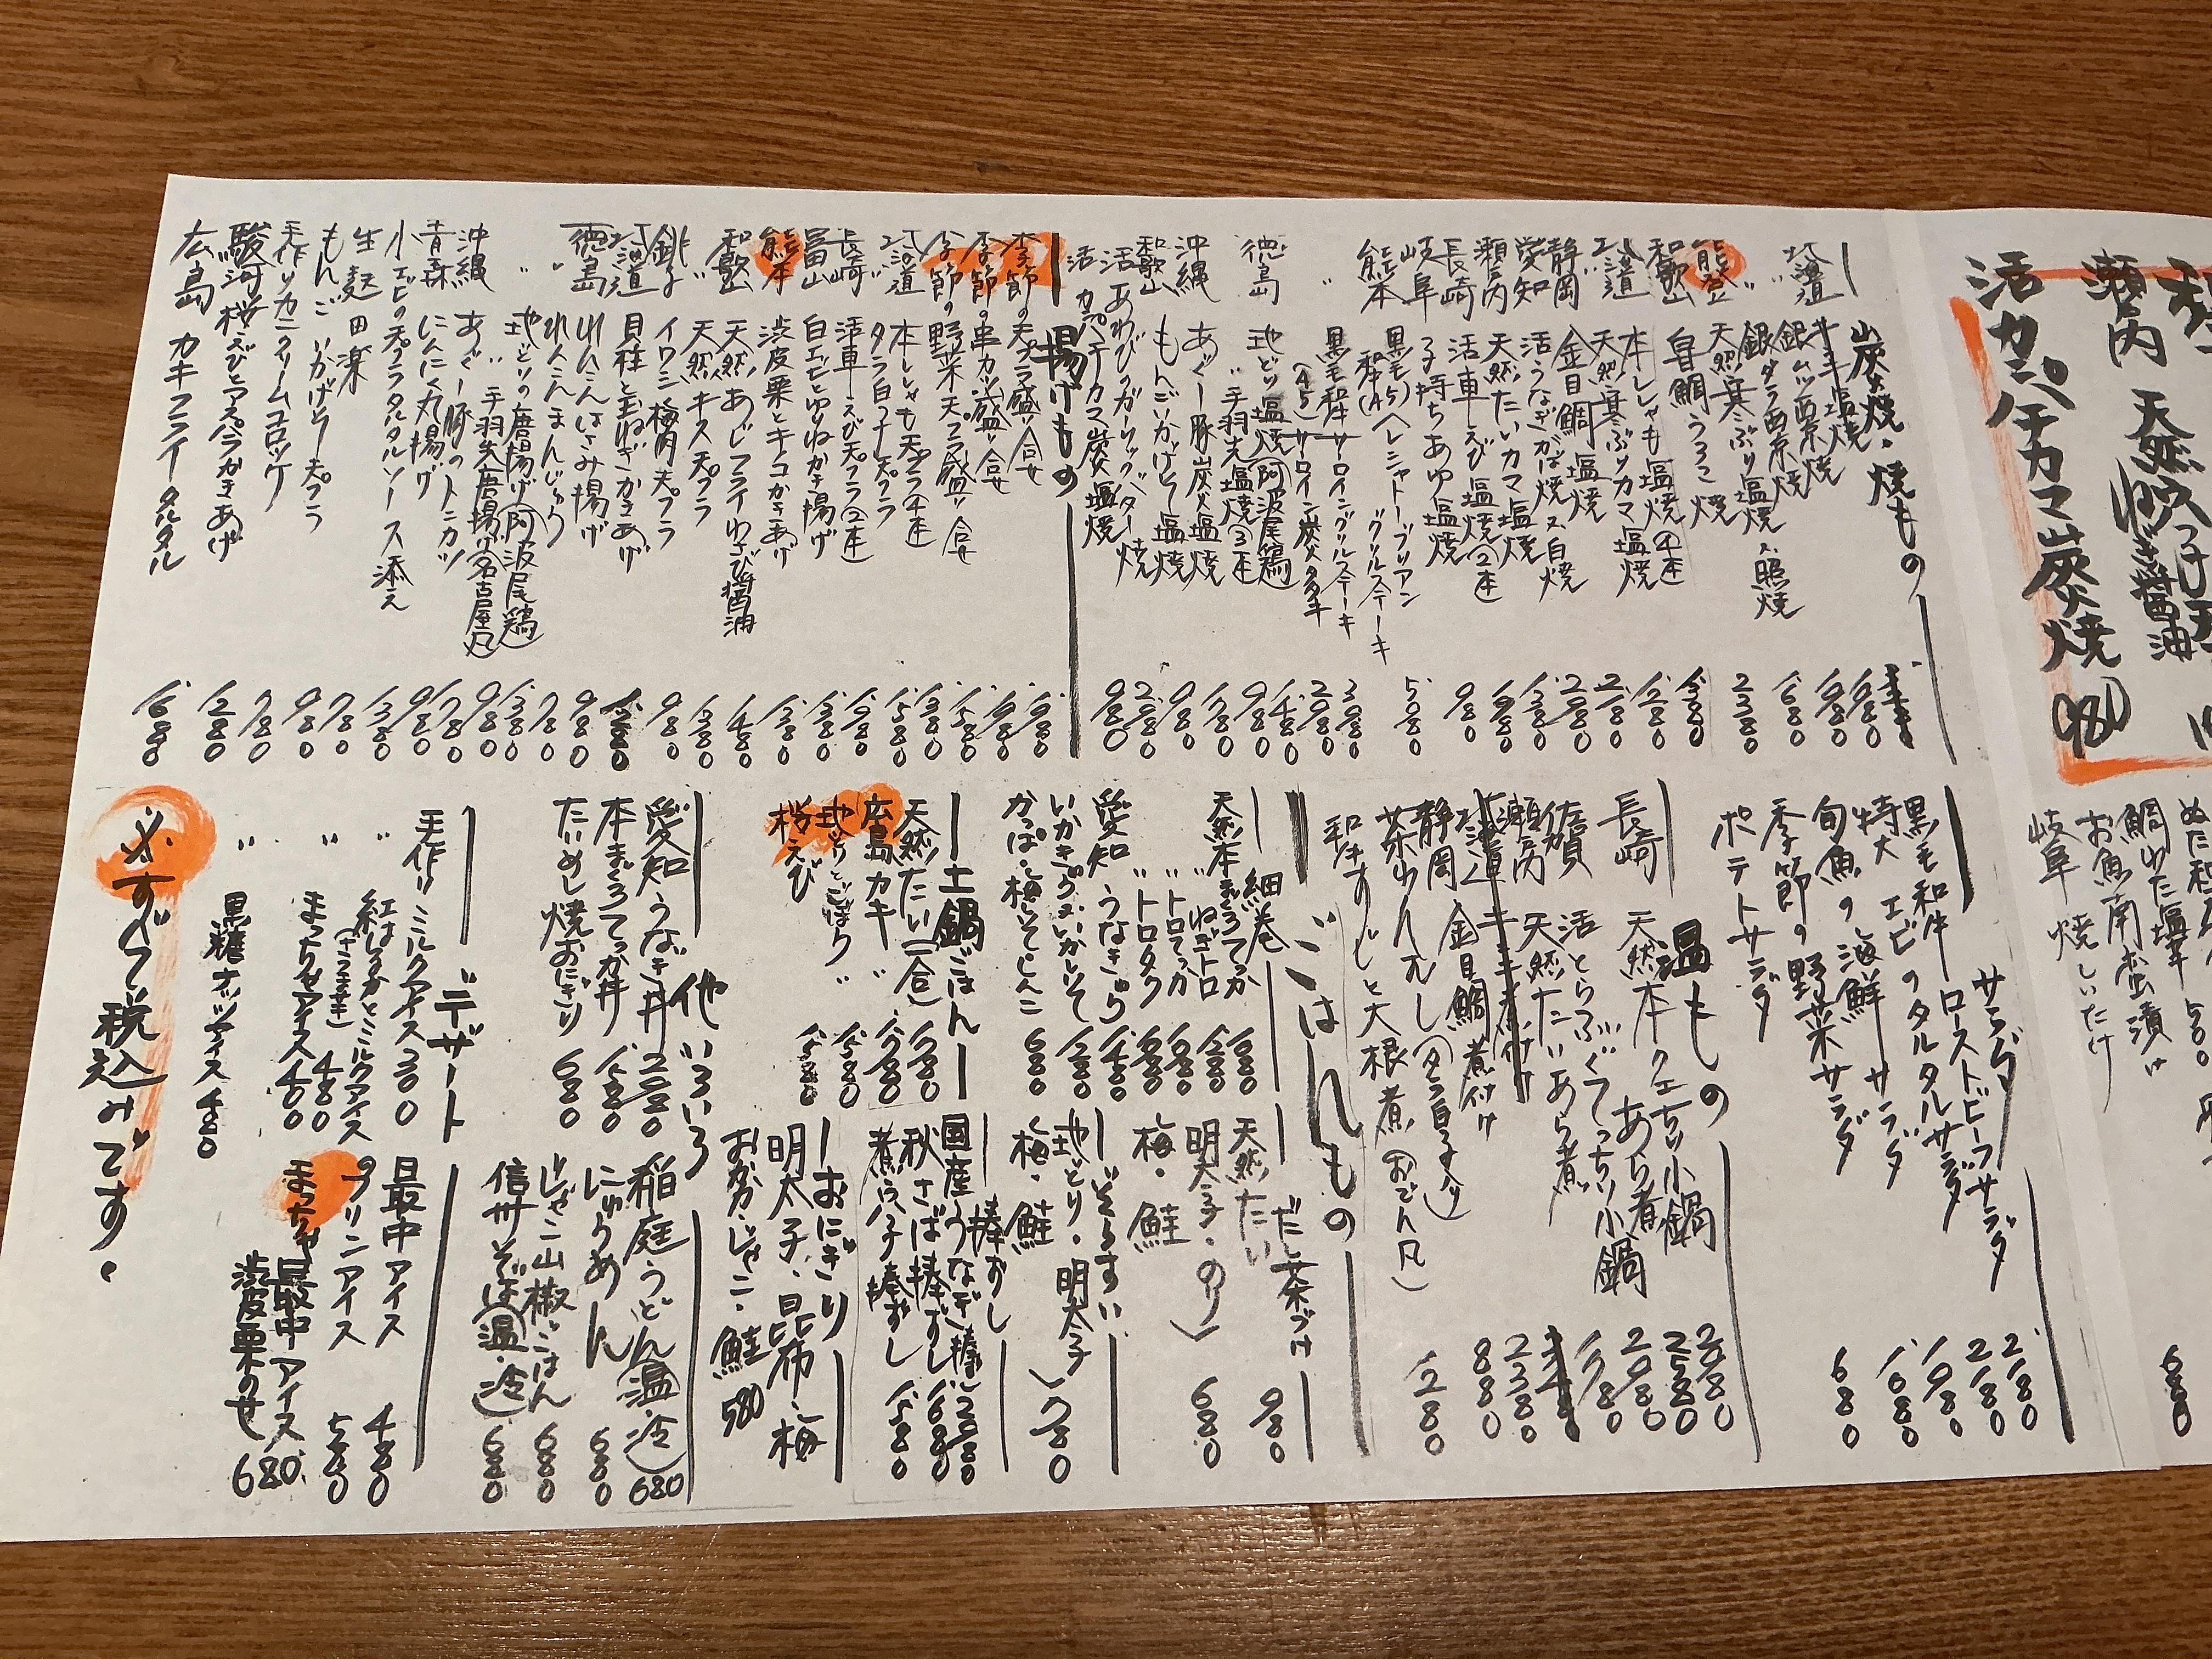 活カンパチカマ炭火焼 980
瀬戸内 天然
ねぎ醤油
お魚南蛮漬け
岐阜 焼しいたけ
680
炭火焼・焼もの
北海道 キンキ塩焼
〃 銀ムツ西京焼 1,980
〃 銀ダラ西京焼 1,980
能登 天然寒ぶり塩焼・照焼 1,680
和歌山 甘鯛うろこ焼 2,380
北海道 本ししゃも塩焼(4本) 1,380
〃 天然寒ぶりカマ塩焼 1,280
静岡 金目鯛塩焼
愛知 活うなぎかば焼・白焼 2,980
瀬戸内 天然たいカマ塩焼 1,380
長崎 活車えび塩焼(2本) 1,980
岐阜 子持ちあゆ塩焼 980
熊本 黒毛和牛(A5)ヘレシャトーブリアン
〃グリルステーキ 5,080
〃 黒毛和牛サーロイングリルステーキ 3,080
(A5)サーロイン炭火タタキ 2,980
徳島 地どり塩焼(阿波尾鶏) 1,480
〃手羽先塩焼(3本) 980
沖縄 あぐー豚炭火塩焼
和歌山 もんごいかげそ塩焼 980
活あわびのガーリックバター焼 2,980
活カンパチカマ炭火塩焼 980
揚げもの
季節の天プラ盛り合せ 1,980
季節の串カツ盛り合せ 1,980
季節の野菜天プラ盛り合せ 1,580
北海道 本ししゃも天プラ(4本) 1,380
〃 タラ白子天プラ 1,580
長崎 活車えび天プラ(2本) 1,980
富山 白エビとゆりねかき揚げ 1,380
熊本 渋皮栗とキノコかきあげ 1,380
和歌山 天然あじフライわさび醤油 1,480
〃 天然キス天プラ 1,380
銚子 イワシ梅肉天プラ 980
北海道 貝柱と玉ねぎかきあげ 1,280
徳島 れんこんはさみ揚げ 980
れんこんまんじゅう 780
〃 地どりの唐揚げ(阿波尾鶏) 1,380
〃 手羽先唐揚げ(名古屋風) 980
沖縄 あぐー豚のトンカツ 1,780
青森 にんにく丸揚げ 980
小エビの天プラタルタルソース添え 1,380
生麩田楽 780
もんごいかげそ天プラ 980
手作りカニクリームコロッケ 780
駿河桜えびとアスパラかきあげ 1,280
広島 カキフライタルタル 1,680
サラダ
黒毛和牛ローストビーフサラダ 2,180
特大エビのタルタルサラダ 2,180
旬魚の海鮮サラダ 1,980
季節の野菜サラダ 1,080
ポテトサラダ 680
温もの
長崎 天然本クエちり小鍋 2,980
あら煮 2,580
佐賀 活とらふぐてっちり小鍋 2,980
瀬戸内 天然たいあら煮 1,780
北海道 キンキ煮付け
静岡 金目鯛煮付け 2,380
茶わんむし(タラ白子入り) 880
和牛すじと大根煮(おでん風) 1,280
ごはんもの
細巻
天然本まぐろてっか 1,680
〃 ねぎトロ 1,280
〃 トロてっか 1,980
〃 トロタク 1,680
愛知 うなきゅう 1,480
いかきゅう・いかしそ 1,280
かっぱ・梅しそ・しんこ 680
だし茶づけ
天然たい 980
明太子・のり
梅・鮭 680
ぞうすい
地どり・明太子
梅・鮭 780
土鍋ごはん
天然たい(一合) 1,780
広島カキ 〃 1,780
地どりとごぼう 〃 1,580
桜えび 1,580
棒ずし
国産うなぎ棒ずし 2,980
秋さば棒ずし 1,680
煮穴子棒ずし 1,580
おにぎり
明太子・昆布・梅
おかか・じゃこ・鮭 580
他いろいろ
愛知うなぎ丼 2,980
本まぐろてっか丼 1,580
たいめし焼おにぎり 680
稲庭うどん(温・冷) 680
にゅうめん 680
じゃこ山椒ごはん 680
信州そば(温・冷) 680
デザート
手作りミルクアイス 300
〃 紅はるかとミルクアイス(さつま芋) 480
〃 まっちゃアイス 400
〃 黒糖ナッツアイス 480
最中アイス 480
プリンアイス 580
まっちゃ最中アイス渋皮栗のせ 680
※すべて税込みです。